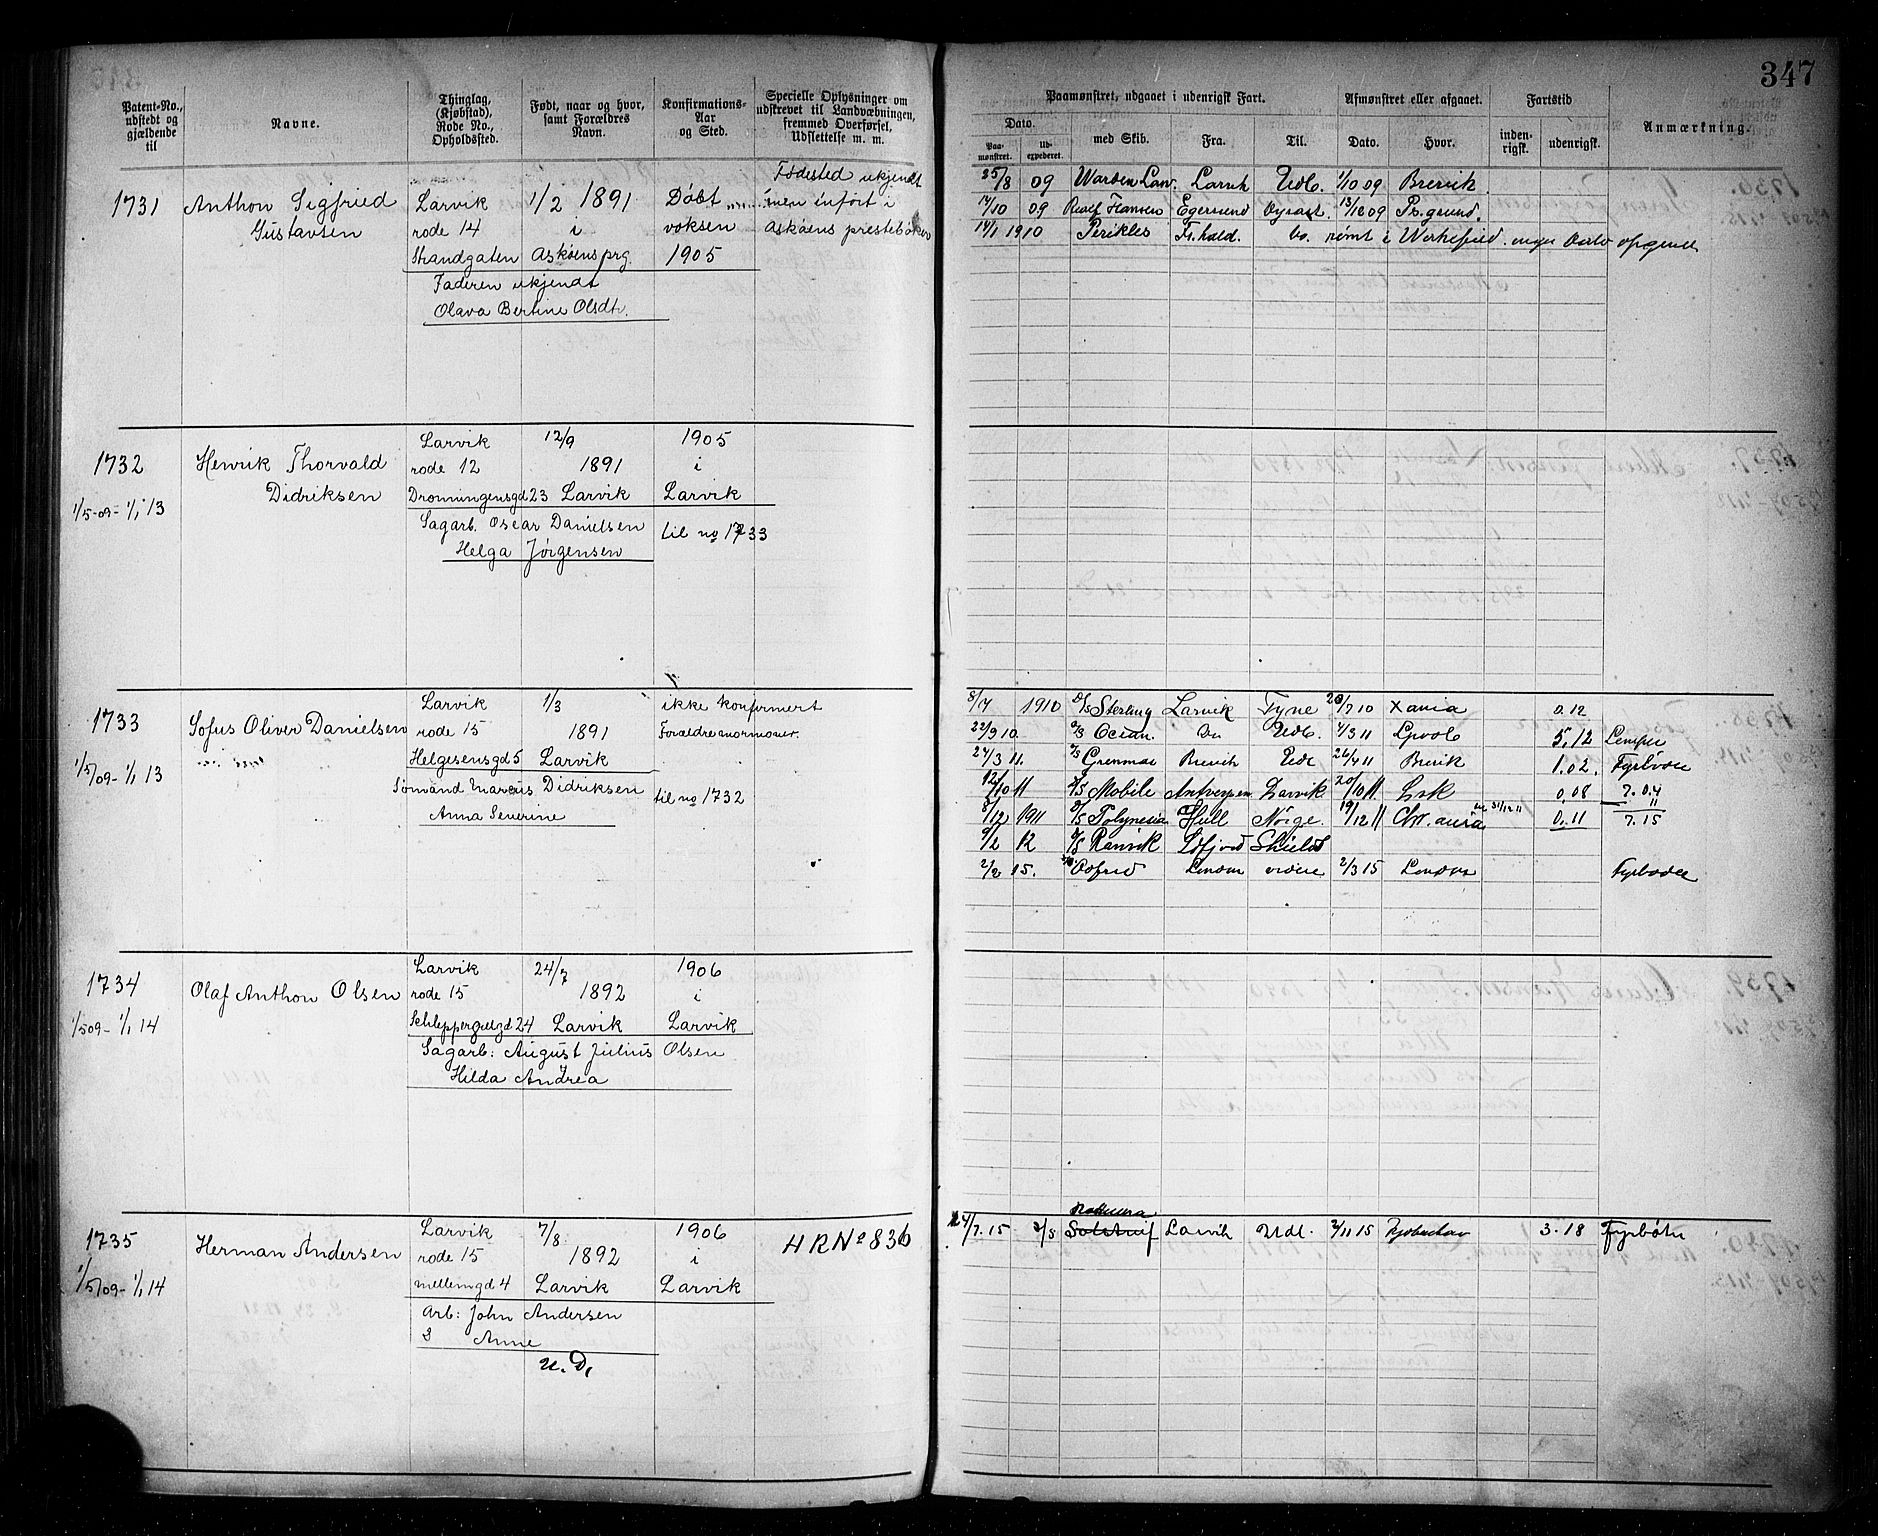 347
Patent-No., udstedt og gjældende til
Navne.
Thinglag, (Kjøbstad), Rode No., Opholdssted.
Født, naar og hvor, samt Forældres Navn.
Konfirmations-Aar og Sted.
Specielle Oplysninger om udskrevet til Landvæbningen, fremmed Overførsel, Udslettelse m. m.
Paamønstret, udgaaet i udenrigsk Fart.
Dato.
Paa-mønstret.
Ud-expederet.
med Skib.
Fra.
Til.
Afmønstret eller afgaaet.
Dato.
Hvor.
Fartstid
inden-rigsk.
udenrigsk.
Anmærkning.
Fødested ukjendt
1731 Anthon Sigfried Larvik 1/2 1891 Døbt men inført i
Gustavsen rode 14 i voksen Askøens prestebøker
Strandgaten Askøens prg. 1905
Faderen ukjendt
Olava Bertine Olsdtr.
25/8 09 Larvik Udl. 1/10 09 Brevik
14/10 09 Rolf Hansen Egersund 13/12 09 Ps.grund.
14/1 1910 Perikles Fr.hald. rømt i
Larvik 12/9 1905
1732 Henrik Thorvald rode 12 1891 i
1/5-09-1/1 13 Didriksen Dronningensgd 23 Larvik Larvik
Sagarb. Oscar Danielsen til no 1733
Helga Jørgensen
Larvik 1/3 ikke konfirmert
1733 Sofus Oliver Danielsen rode 15 1891 Forældre mormoner.
1/5/09-1/1 13 Helgesensgd 5 Larvik
Sømand Marcus Didriksen til no 1732
Anna Severine
8/7 1910 D/S Sterling Larvik Tyne 20/7 10 Xania 0.12
22/9 10 Ocean Do Udl. 4/3 11 Lpool 5.12 Lemper
24/3 11. Grenmar Brevik Udl 26/4 11 Brevik 1.02. Fyrbøder
12/10 11 D/S Mobile Antverpen Larvik 20/10 11 Lvk 0.08 7.04
8/12 1911 D/S Polynesia Hull Norge. 19/12 11 Chr.ania 31/12 11 0.11 11
7.15
9/2 12 D/S Ranvik Sdfjord Shields
2/2 15. London videre 2/3 15 London Fyrbøder
Larvik 24/7 1906
1734 Olaf Anthon Olsen rode 15 1892 i
1/5 09-1/1 14 Schleppegrelgd 24 Larvik Larvik
Sagarb: August Julius Olsen
Hilda Andrea
Larvik 7/8 1906
1735 Herman Andersen rode 15 1892 i H R No 836
1/5/09-1/1 14 mellemgd 4 Larvik Larvik
Arb: John Andersen
Anne
U. D,
24/7.15 D/S Larvik Udl. 2/11 15 Kjøbenhav 3.18 Fyrbøter